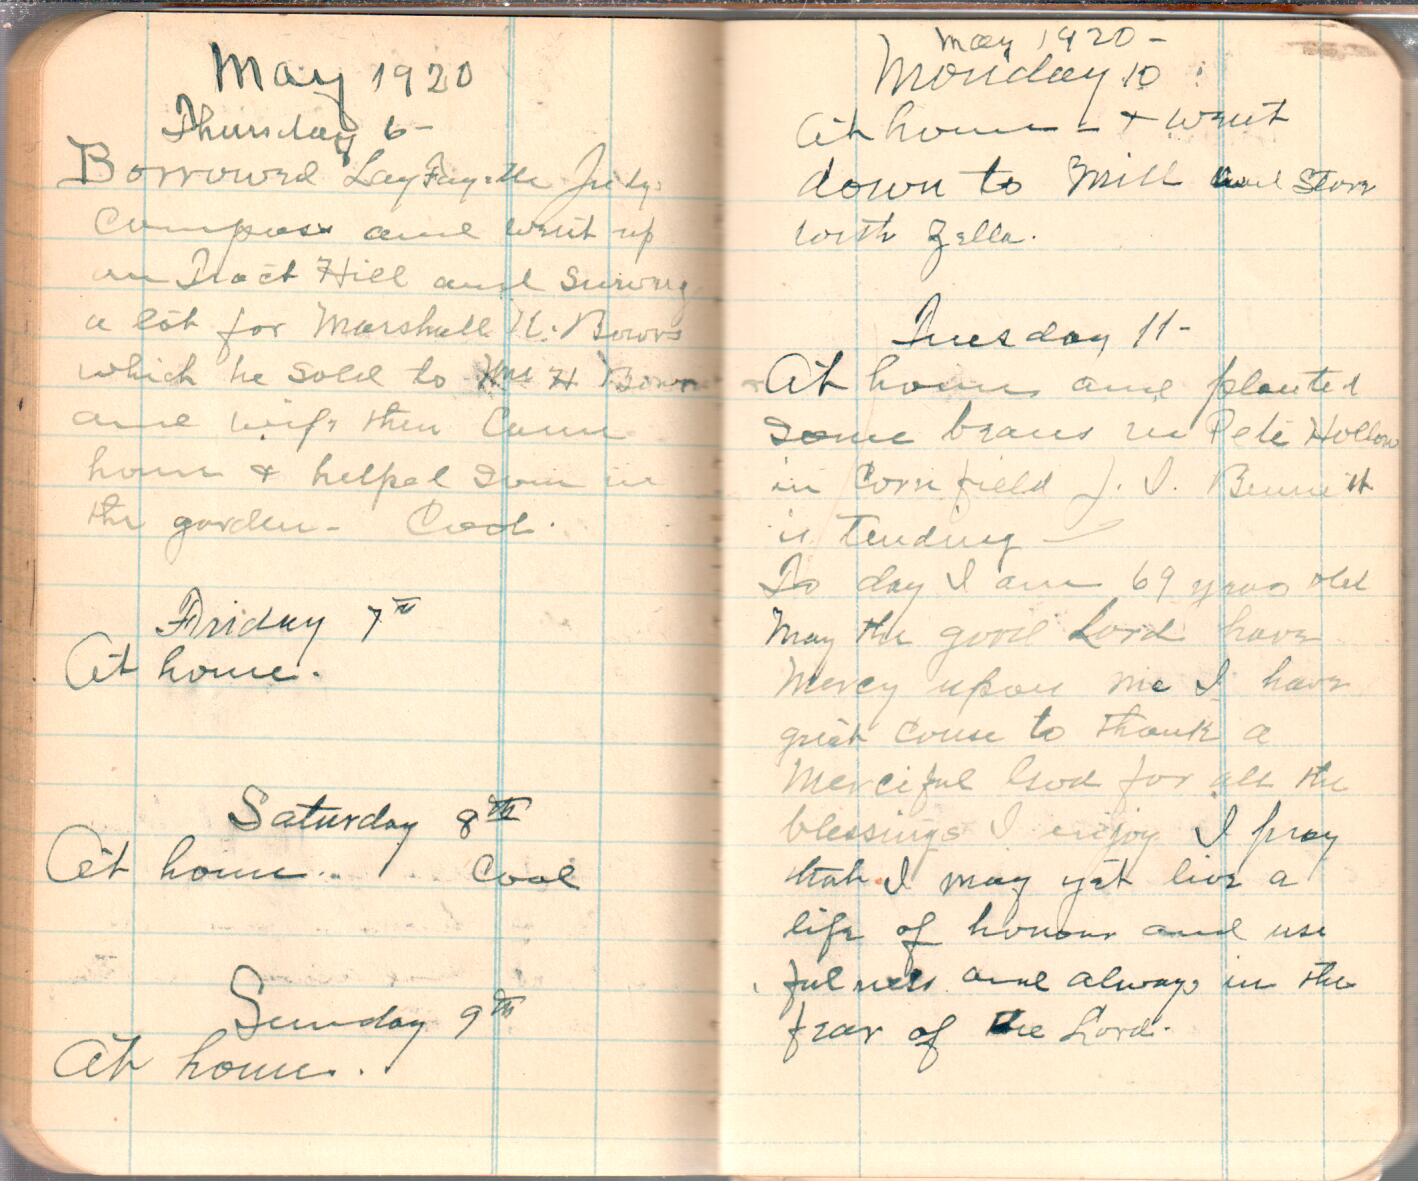 May 1920
Thursday 6-
Borrowed LayFayette Judy
Compass and went up
on Tract Hill and Survey
a lot for Marshall K. Bowrs
which he Sold to H Bowr
and wife then Came
home & helped Som in
the garden - Cool.
Friday 7th
At home.
Saturday 8th
At home.. Cool
Sunday 9th
At home.
May 1920-
Monday 10
At home - & went
down to Mill and Store
with Zella.
Tuesday 11-
At home and planted
Some beans in Pete Hollow
in Corn field J. I. Bennett
is tending
To day I am 69 years old
May the good Lord have
Mercy upon me I have
great Couse to thank a
Merciful God for all the
blessings I enjoy I pray
that I may yet live a
life of honour and use
fulness and always in the
fear of the Lord.